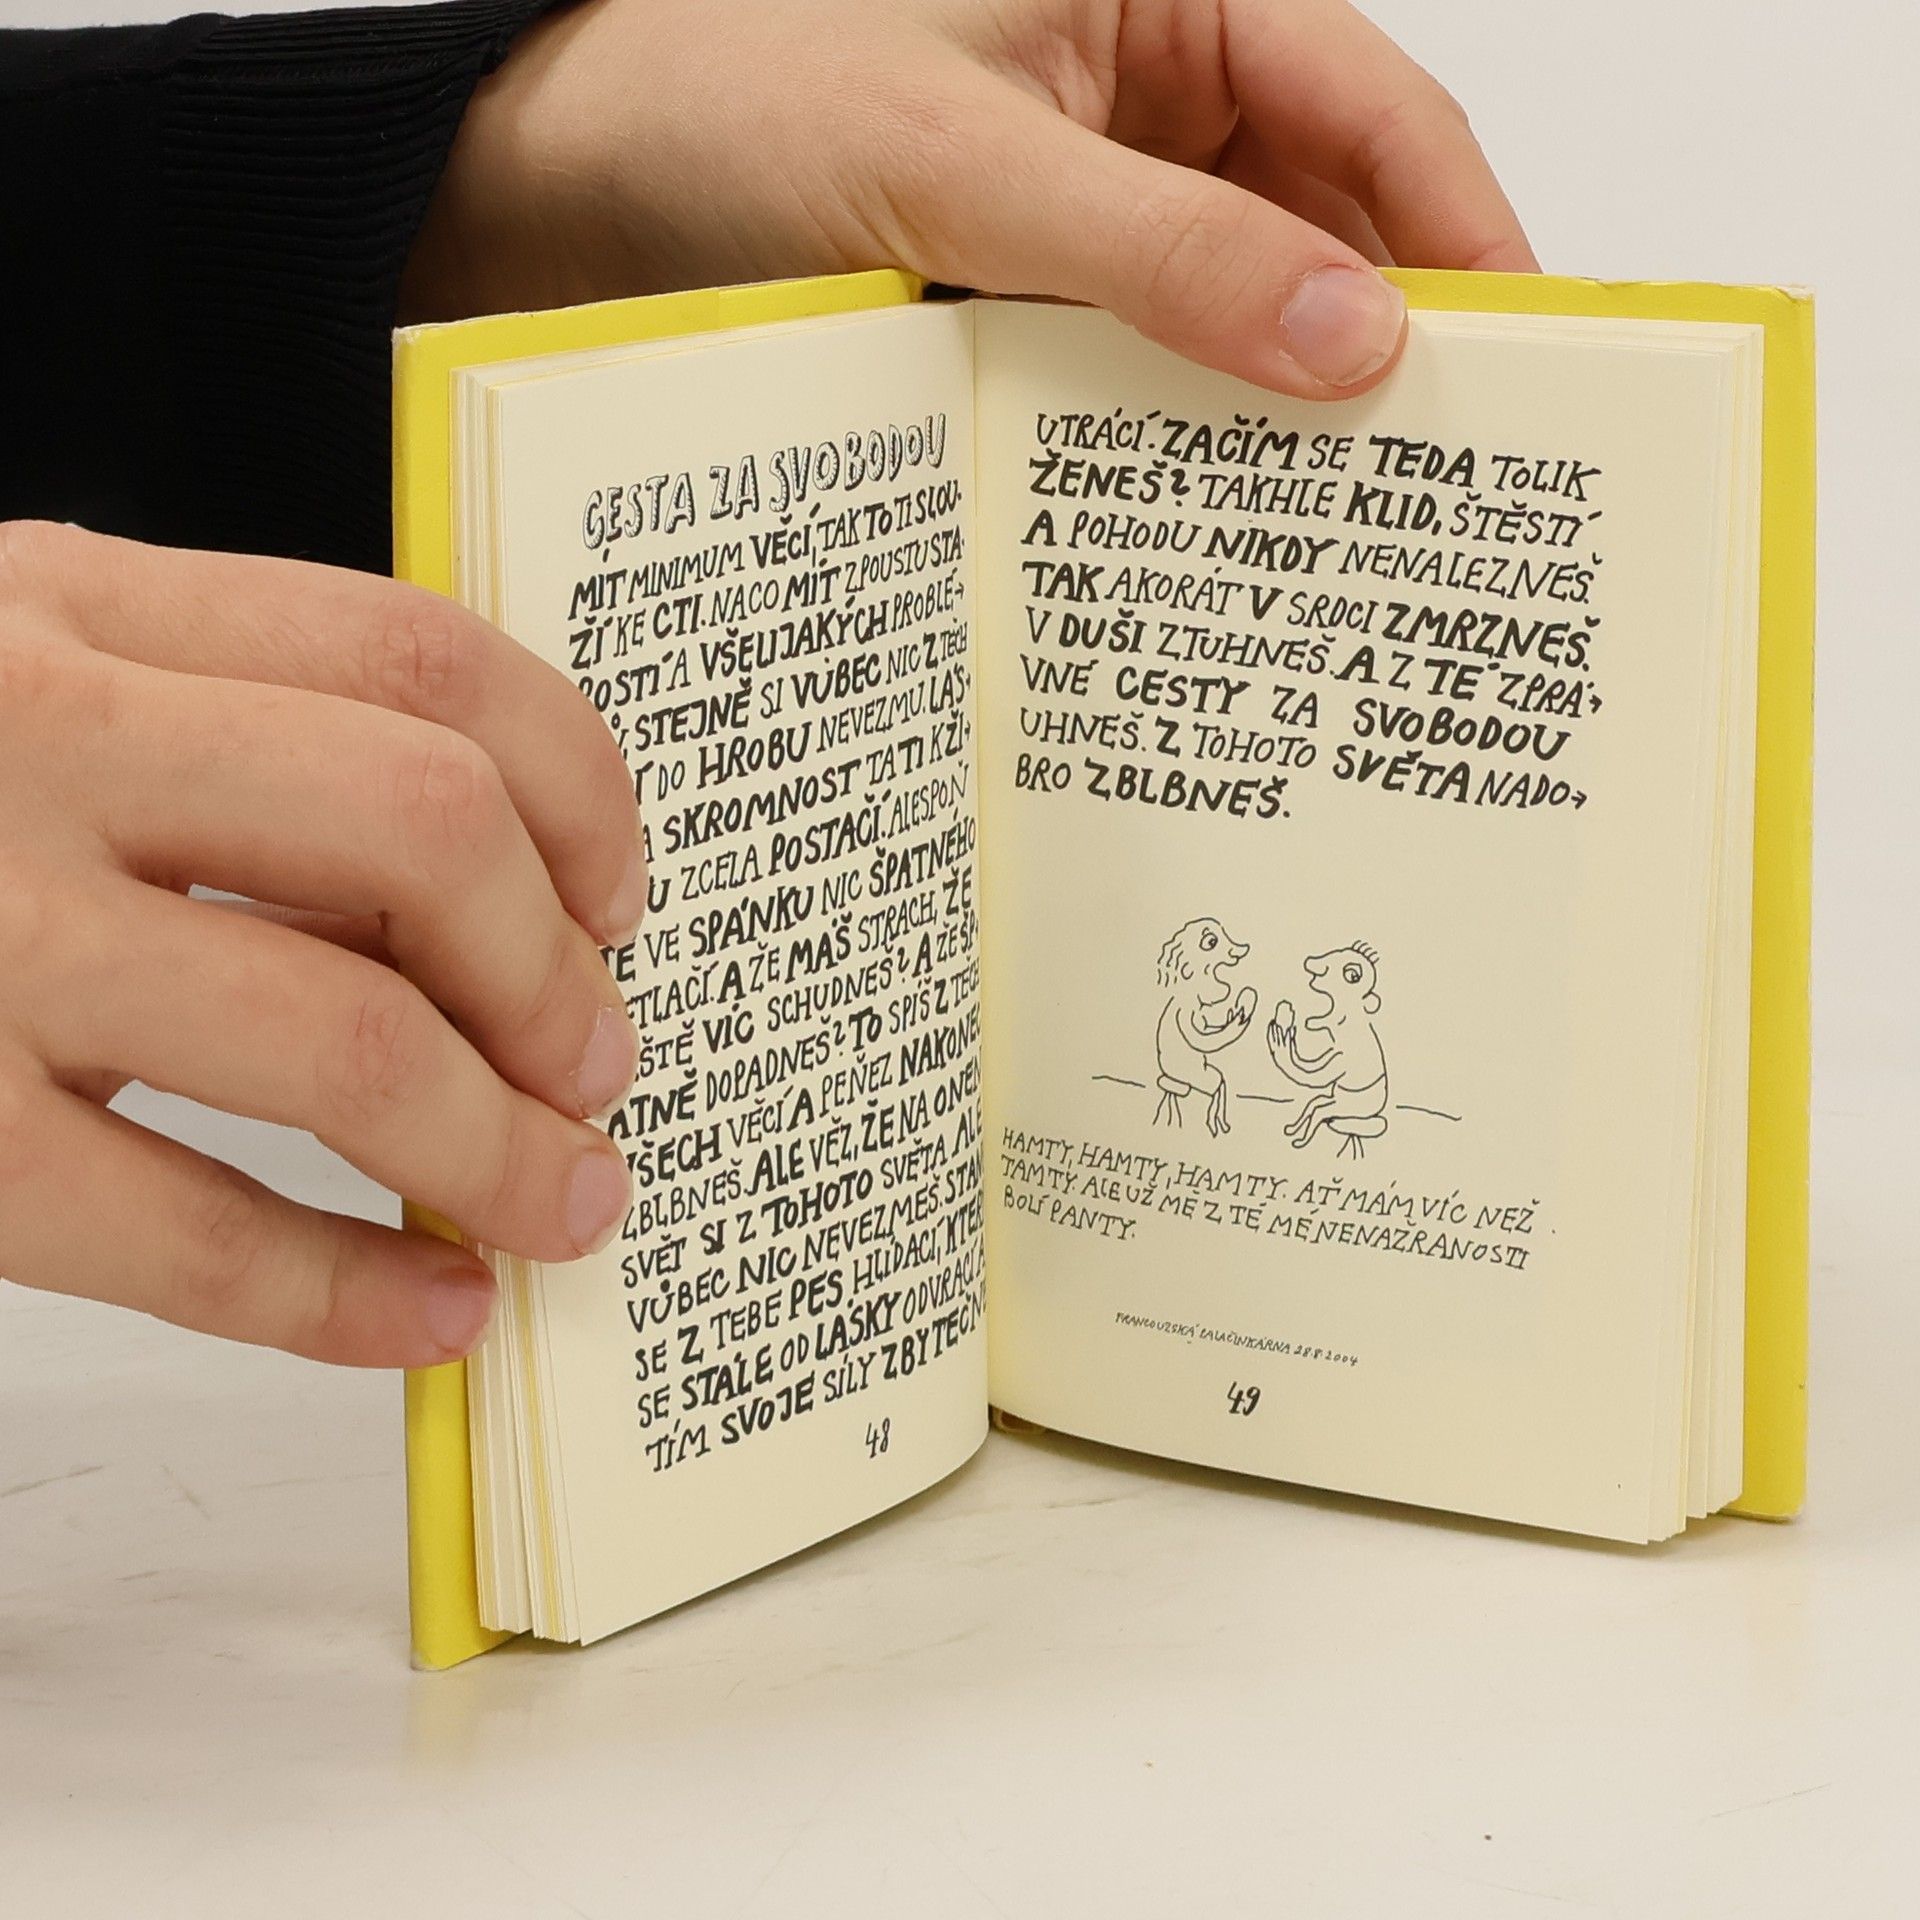 CESTA ZA SVOBODOU
MÍT MINIMUM VĚCÍ, TAK TO TI SLOU-
ŽÍ KE CTI. NACO MÍT Z POUSTU STA-
ROSTÍ A VŠELIJAKÝCH PROBLÉ→
STEJNĚ SI VŮBEC NIC Z TĚCH
DO HROBU NEVEZMU. LÁS-
A SKROMNOST TA TI K ŽI-
U ZCELA POSTAČÍ. ALESPOŇ
TĚ VE SPÁNKU NIC ŠPATNÉHO
ETLAČÍ. A ŽE MÁŠ STRACH, ŽE
VÍC SCHUDNEŠ? A ŽE ŠP-
ATNĚ DOPADNEŠ? TO SPÍŠ Z TĚCH
VŠECH VĚCÍ A PENĚZ NAKONEC
ZBLBNEŠ. ALE VĚZ, ŽE NA ONEN
SVĚT SI Z TOHOTO SVĚTA ALE
VŮBEC NIC NEVEZMEŠ. STAN
SE Z TEBE PES HLÍDACÍ, KTER
SE STÁLE OD LÁSKY ODVRACÍ A
TÍM SVOJE SÍLY ZBYTEČNĚ
48
UTRÁCÍ. ZAČÍM SE TEDA TOLIK
ŽENEŠ? TAKHLE KLID, ŠTĚSTÍ
A POHODU NIKDY NENALEZNEŠ.
TAK AKORÁT V SRDCI ZMRZNEŠ.
V DUŠI ZTUHNEŠ. A Z TÉ ZPRÁ→
VNÉ CESTY ZA SVOBODOU
UHNEŠ. Z TOHOTO SVĚTA NADO→
BRO ZBLBNEŠ.
HAMTY, HAMTY, HAMTY. AŤ MÁM VÍC NEŽ
TAMTY. ALE UŽ MĚ Z TÉ MÉ NENAŽRANOSTI
BOLÍ PANTY.
FRANCOUZSKÁ PALAČINKÁRNA 28.8.2004
49